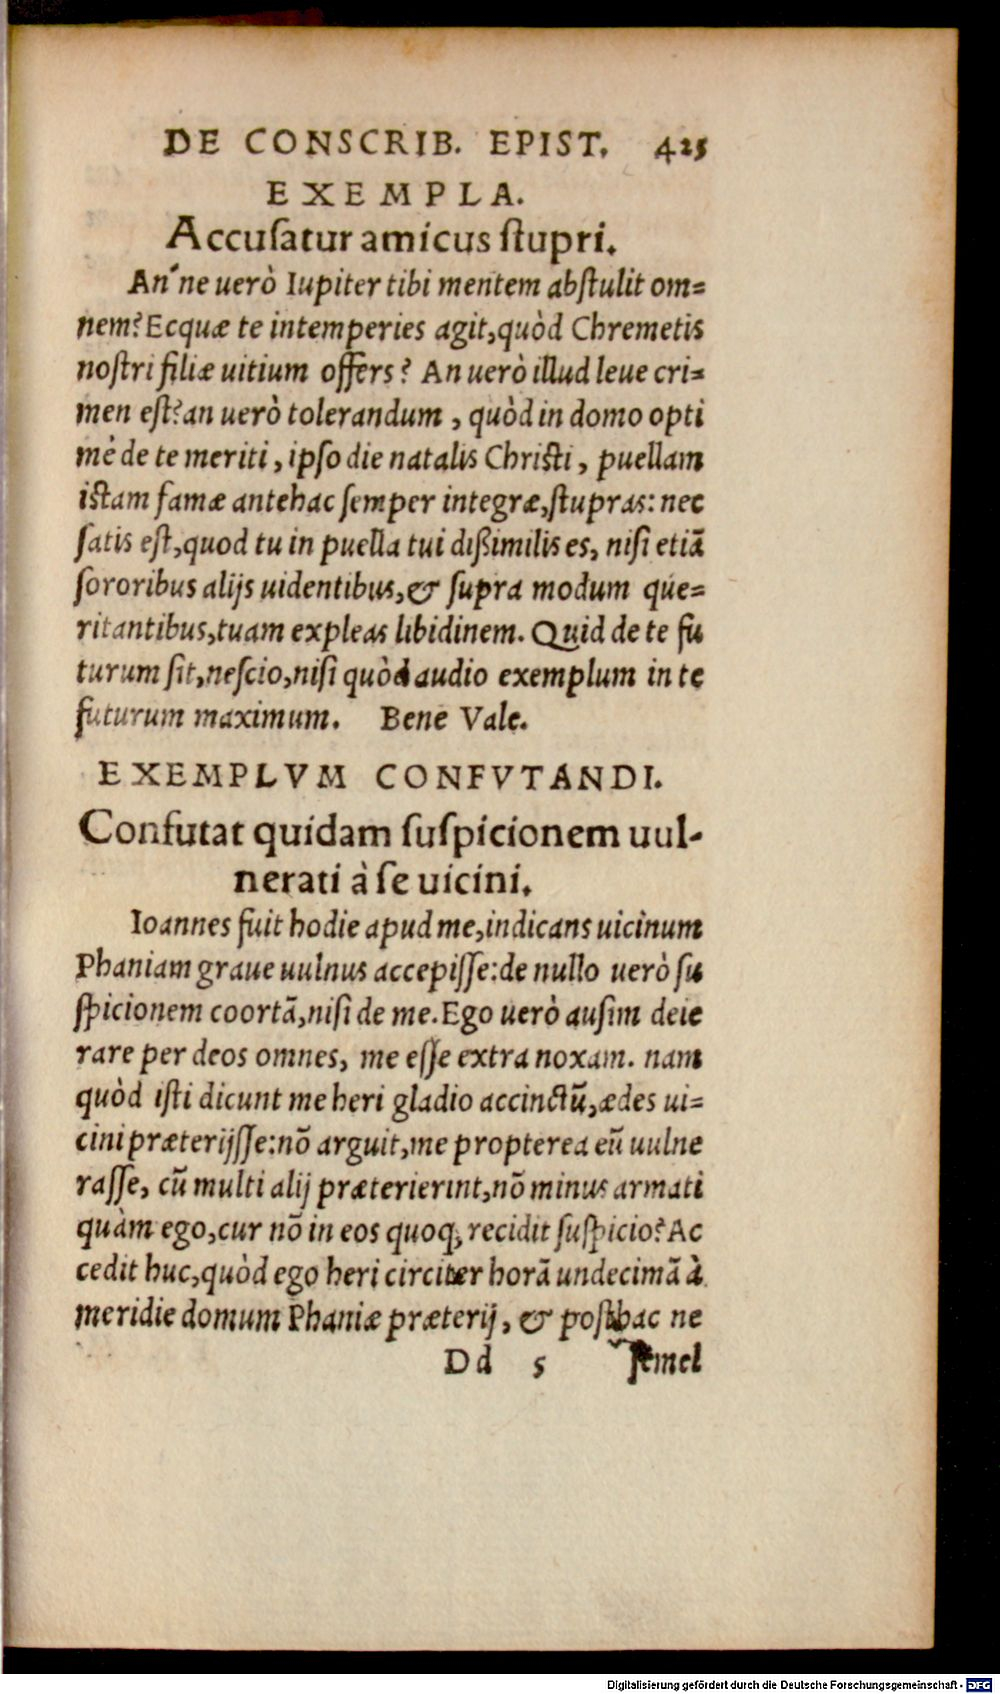 DE CONSCRIB. EPIST. 425
EXEMPLA.
Accuſatur amicus ſtupri.
An'ne uerò Iupiter tibi mentem abſtulit om=
nem? Ecquæ te intemperies agit, quòd Chremetis
noſtri filiæ uitium offers? An uerò illud leue cri=
men eſt? an uerò tolerandum, quòd in domo opti
mè de te meriti, ipſo die natalis Chriſti, puellam
iſtam famæ antehac ſemper integræ, ſtupras: nec
ſatis eſt, quod tu in puella tui dißimilis es, niſi etiã
ſororibus alijs uidentibus, & ſupra modum que=
ritantibus, tuam expleas libidinem. Quid de te fu
turum ſit, neſcio, niſi quòd audio exemplum in te
futurum maximum. Bene Vale.
EXEMPLVM CONFVTANDI.
Confutat quidam ſuſpicionem uul-
nerati à ſe uicini.
Ioannes fuit hodie apud me, indicans uicinum
Phaniam graue uulnus accepiſſe: de nullo uerò ſu
ſpicionem coortã, niſi de me. Ego uerò auſim deie
rare per deos omnes, me eſſe extra noxam. nam
quòd iſti dicunt me heri gladio accinctũ, ædes ui=
cini præterijſſe: nõ arguit, me propterea eũ uulne
raſſe, cũ multi alij præterierint, nõ minus armati
quàm ego, cur nõ in eos quoq; recidit ſuſpicio? Ac
cedit huc, quòd ego heri circiter horã undecimã à
meridie domum Phaniæ præterij, & poſthac ne
Dd 5 ſemel
Digitalisierung gefördert durch die Deutsche Forschungsgemeinschaft - DFG